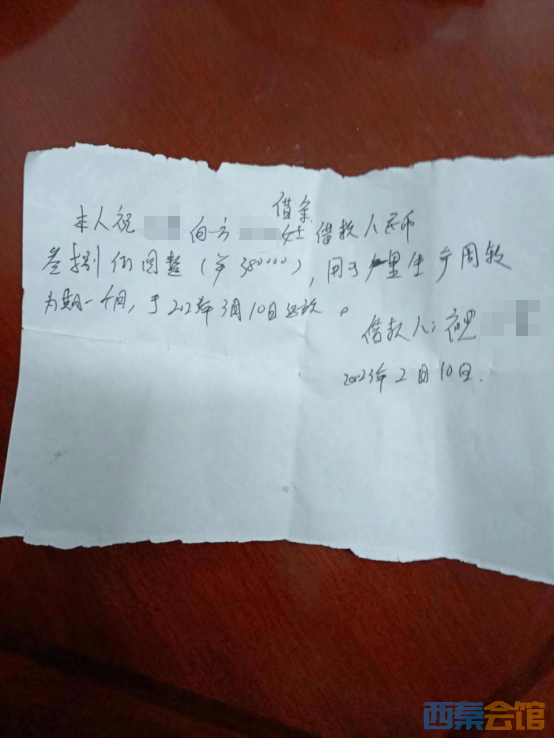 借条
本人祝 向方 女士借款人民币
叁拾捌万圆整(￥380000),用于厂里生产周转
为期一个月,于2023年3月10日还款。
借款人:祝
2023年2月10日.
西秦会馆